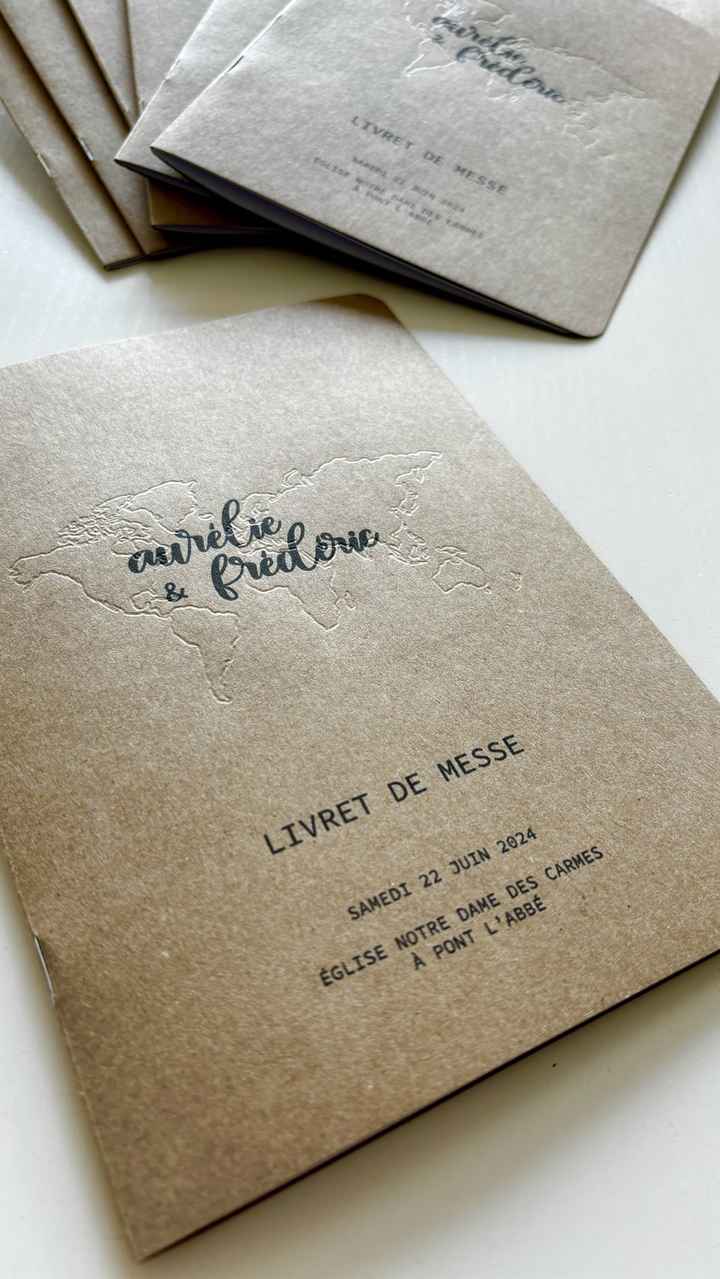 aurélie
& fréderic
LIVRET DE MESSE
SAMEDI 22 JUIN 2024
ÉGLISE NOTRE DAME DES CARMES
À PONT L'ABBÉ
aurélie
& fréderic
LIVRET DE MESSE
SAMEDI 22 JUIN 2024
ÉGLISE NOTRE DAME DES CARMES
À PONT L'ABBÉ